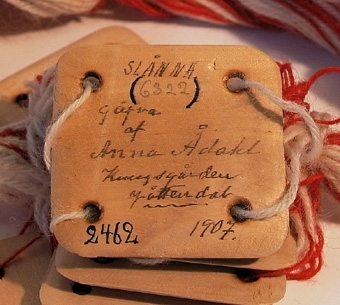 SLÅNNA
(6322)
gåfva
af
Anna Ådahl
Kungsgården
Måttendal
2462 1907.